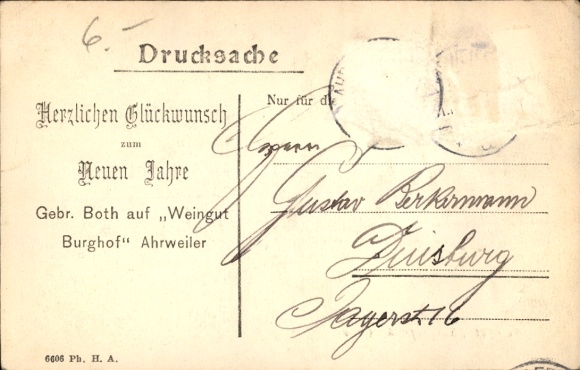 6.-
Drucksache
Herzlichen Glückwunsch
zum
Neuen Jahre
Gebr. Both auf „Weingut
Burghof" Ahrweiler
Nur für d
Herrn
Gustav Berkermann
Duisburg
6606 Ph. H. A.